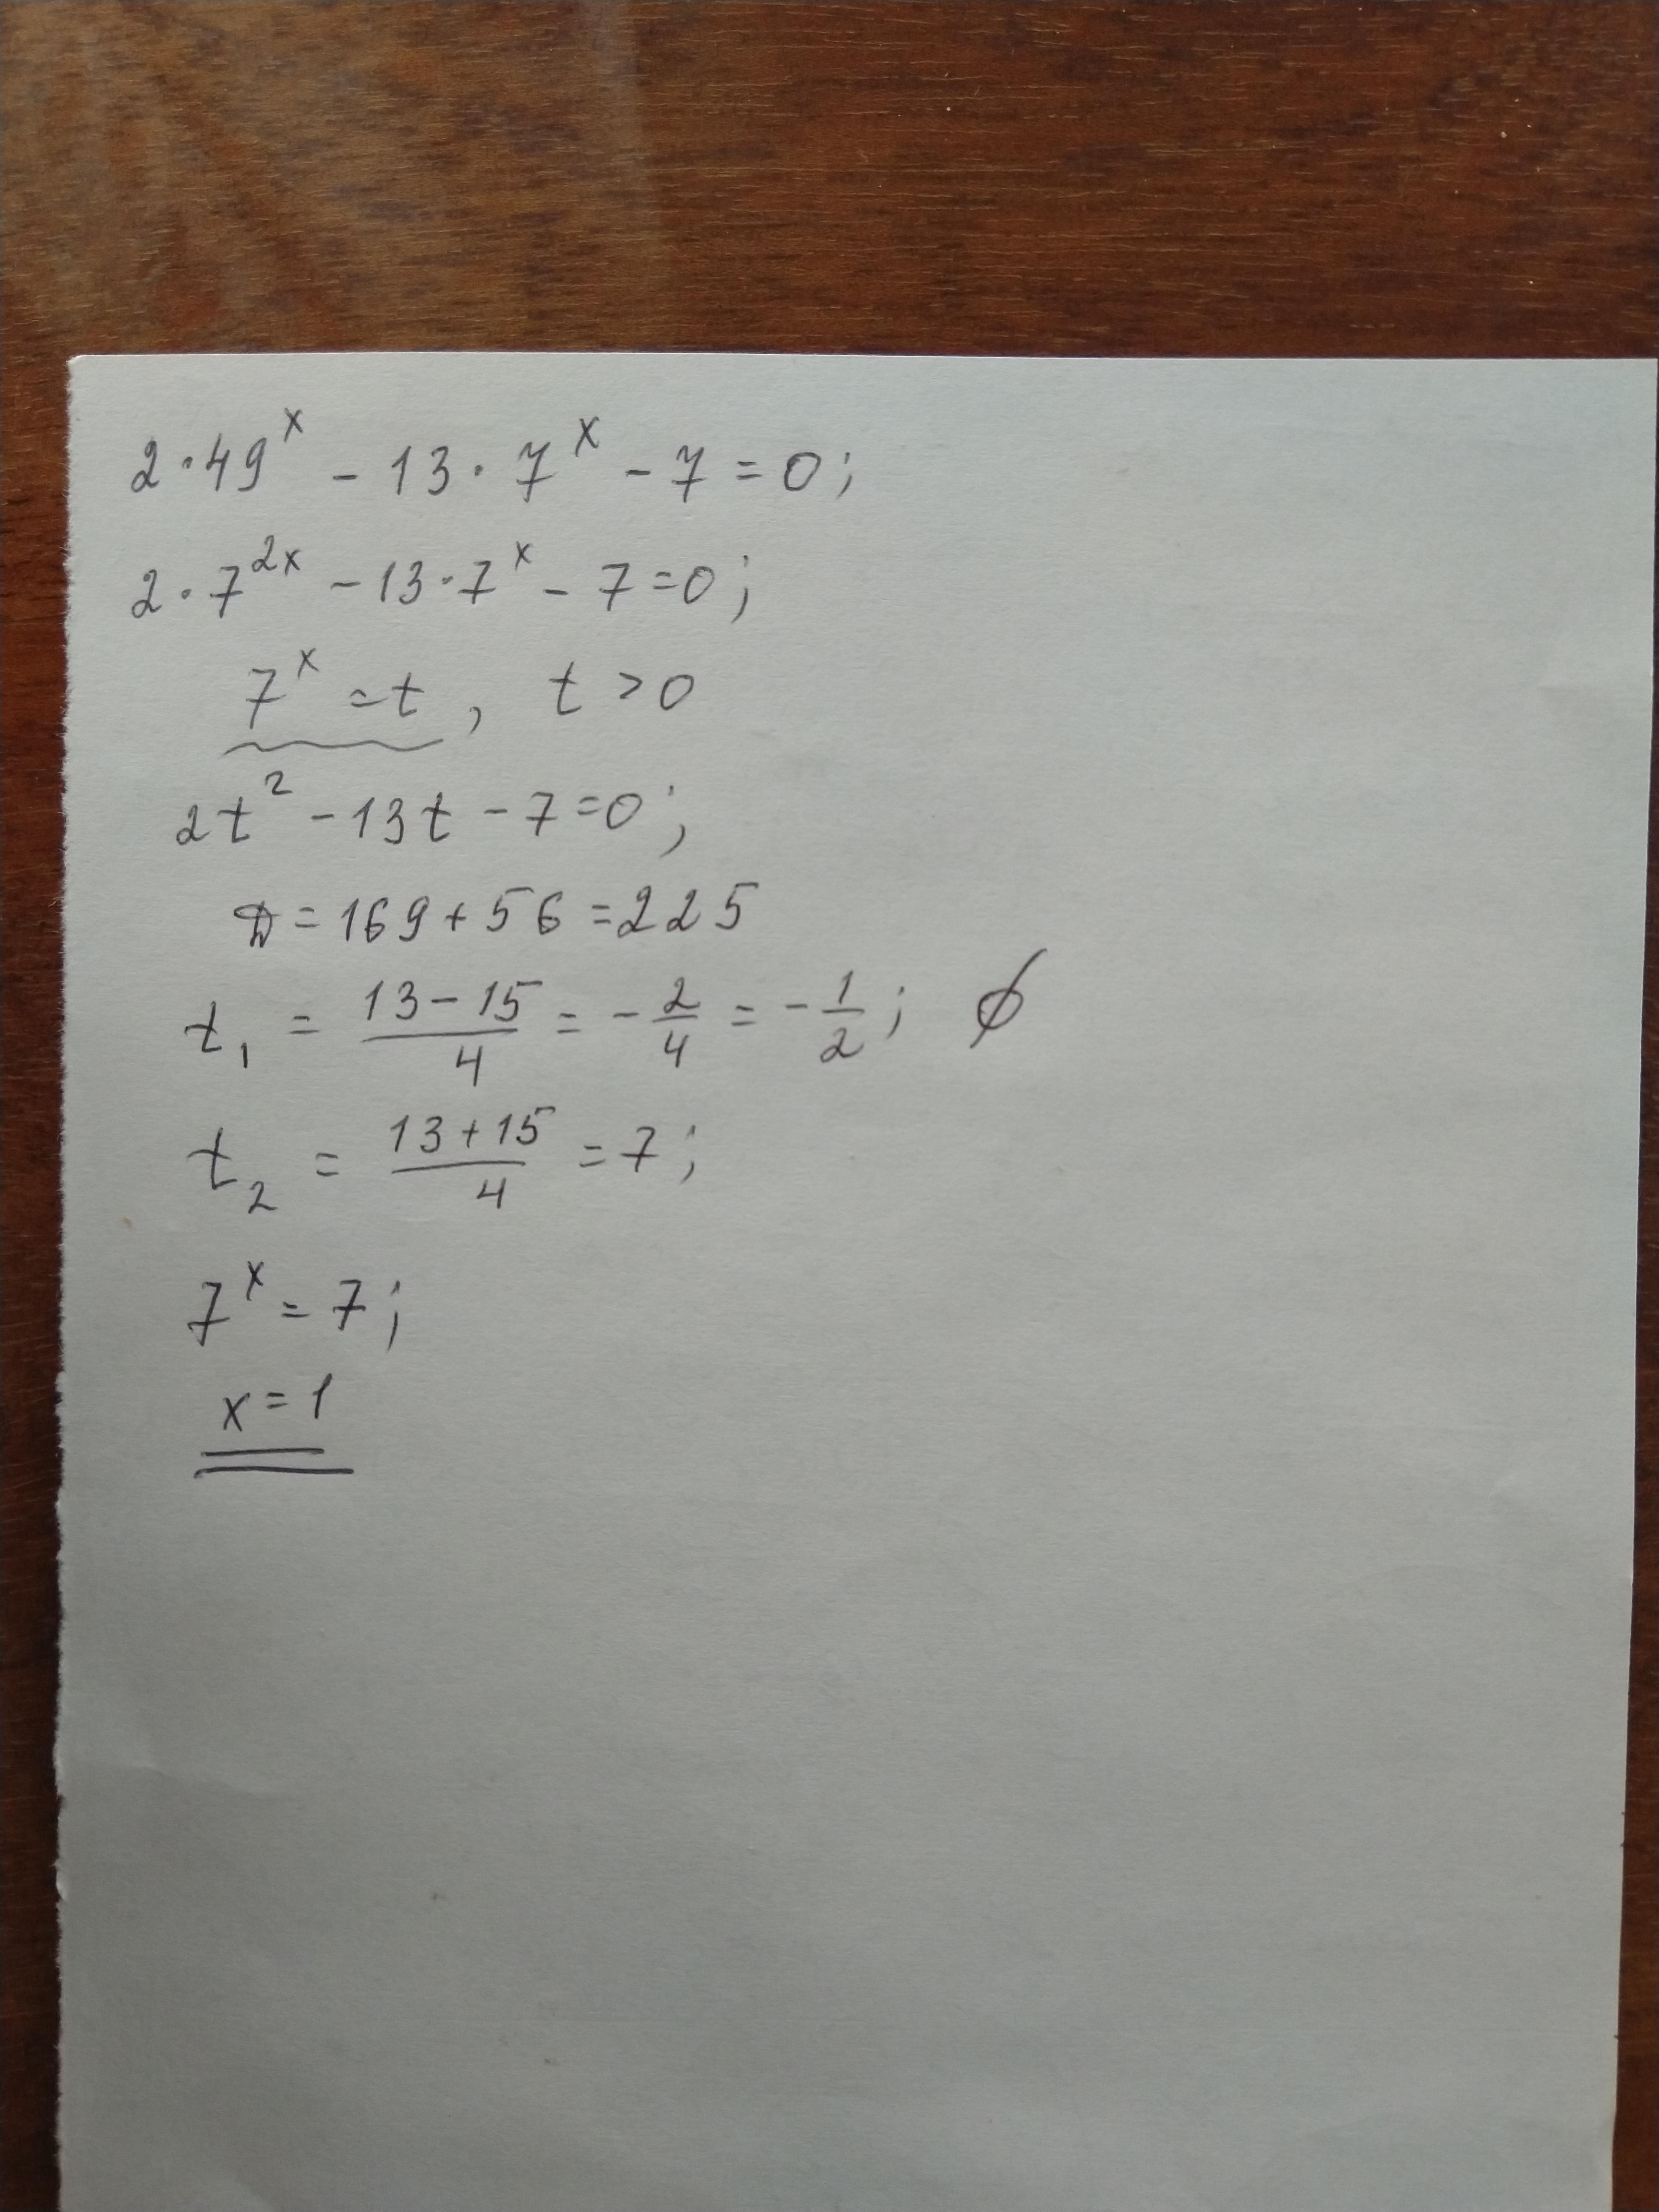 2·49^x - 13·7^x - 7 = 0;
2·7^2x - 13·7^x - 7 = 0;
7^x = t, t > 0
2t² - 13t - 7 = 0;
D = 169 + 56 = 225
t₁ = (13 - 15)/4 = - 2/4 = - 1/2; ∅
t₂ = (13 + 15)/4 = 7;
7^x = 7;
x = 1